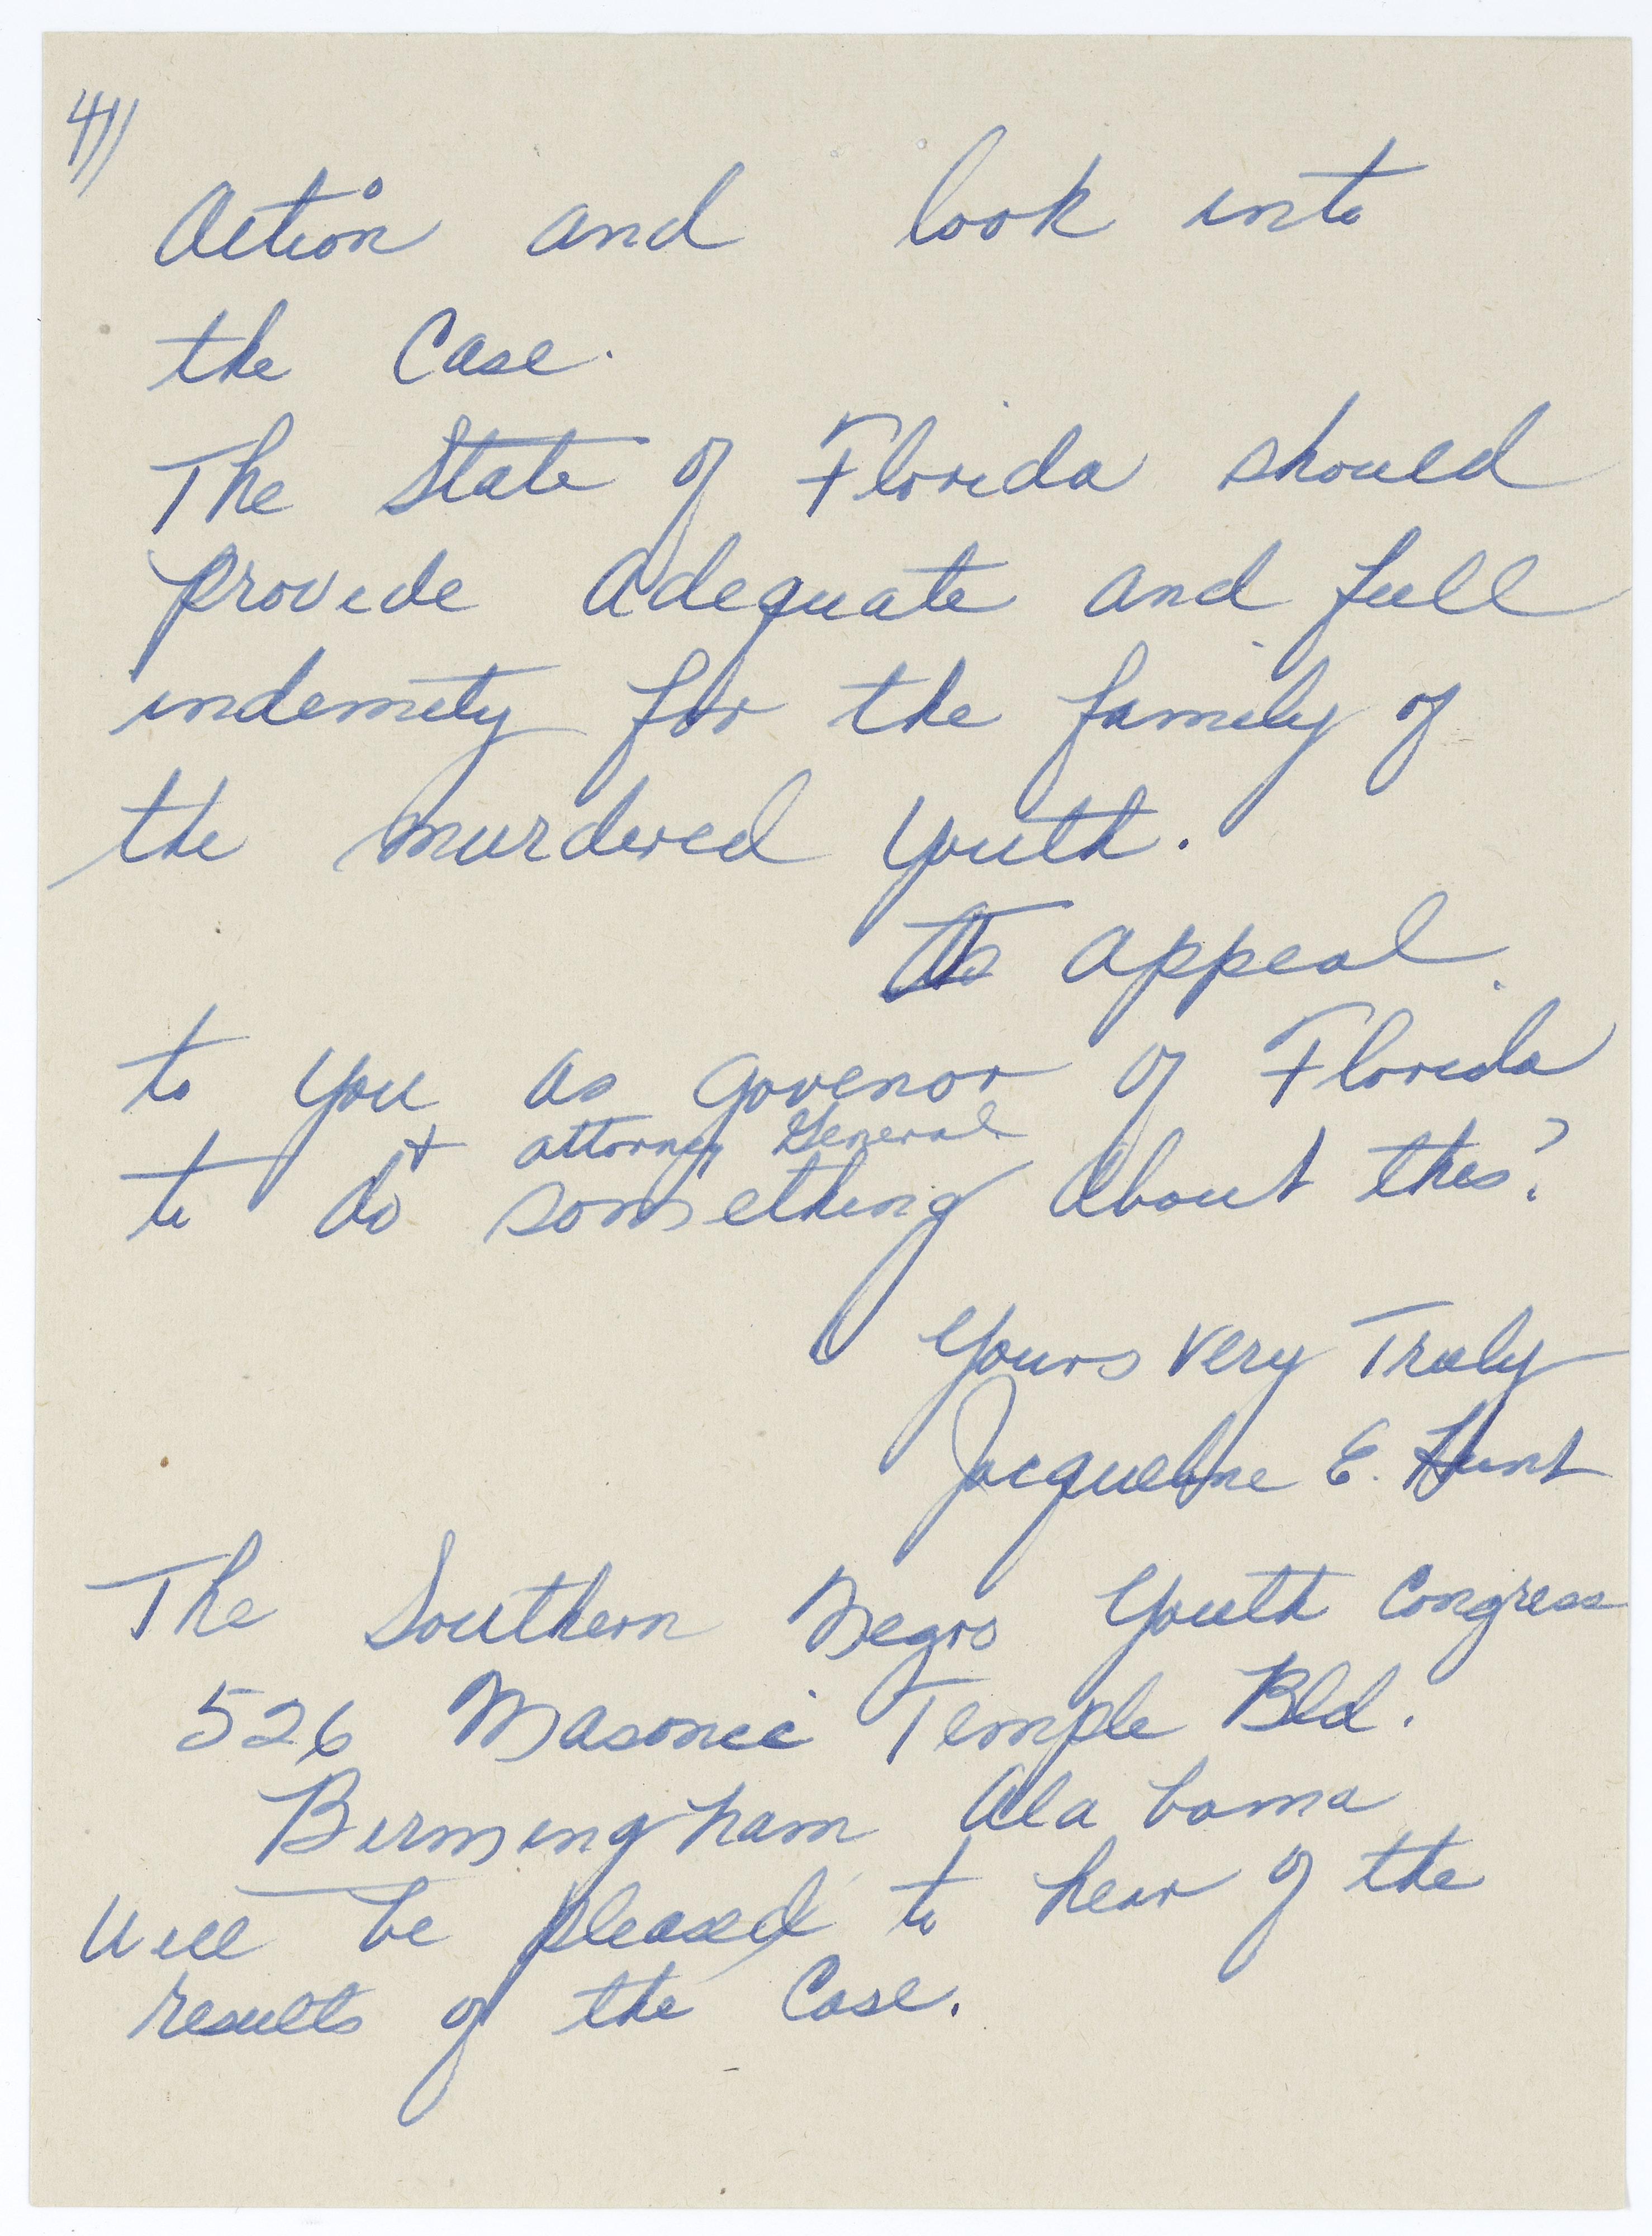 4//
Action and look into
the Case.
The State of Florida should
provide adequate and full
indemity for the family of
the murdered Youth.
appeal
to you as Govenor of Florida
+ attorney General
to do something about this?
Yours Very Truly
Jacqueline E. Hunt
The Southern Negro Youth Congress
526 Masonic Temple Bld.
Birmingham Alabama
Will be pleased to hear of the
results of the Case.